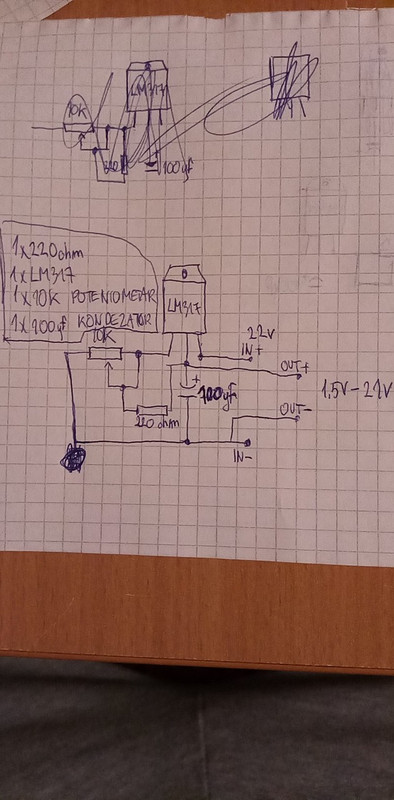 LM317
10K
220
100yf
1x220ohm
1xLM317
1x10K POTENIOMETAR
1x100yf KONDEZATOR
LM317
10K
22V
IN+
OUT+
+
100yf
1,5V-21V
OUT-
220 ohm
IN-